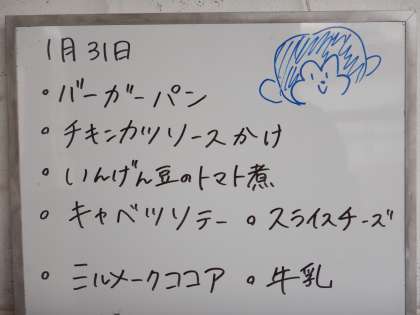 1月31日
• バーガーパン
• チキンカツソースかけ
• いんげん豆のトマト煮
• キャベツソテー • スライスチーズ
• ミルメークココア • 牛乳